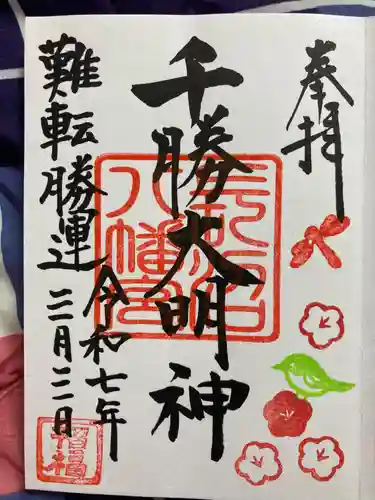 奉拝
千勝大明神
八幡宮
令和七年
三月三日
難転勝運